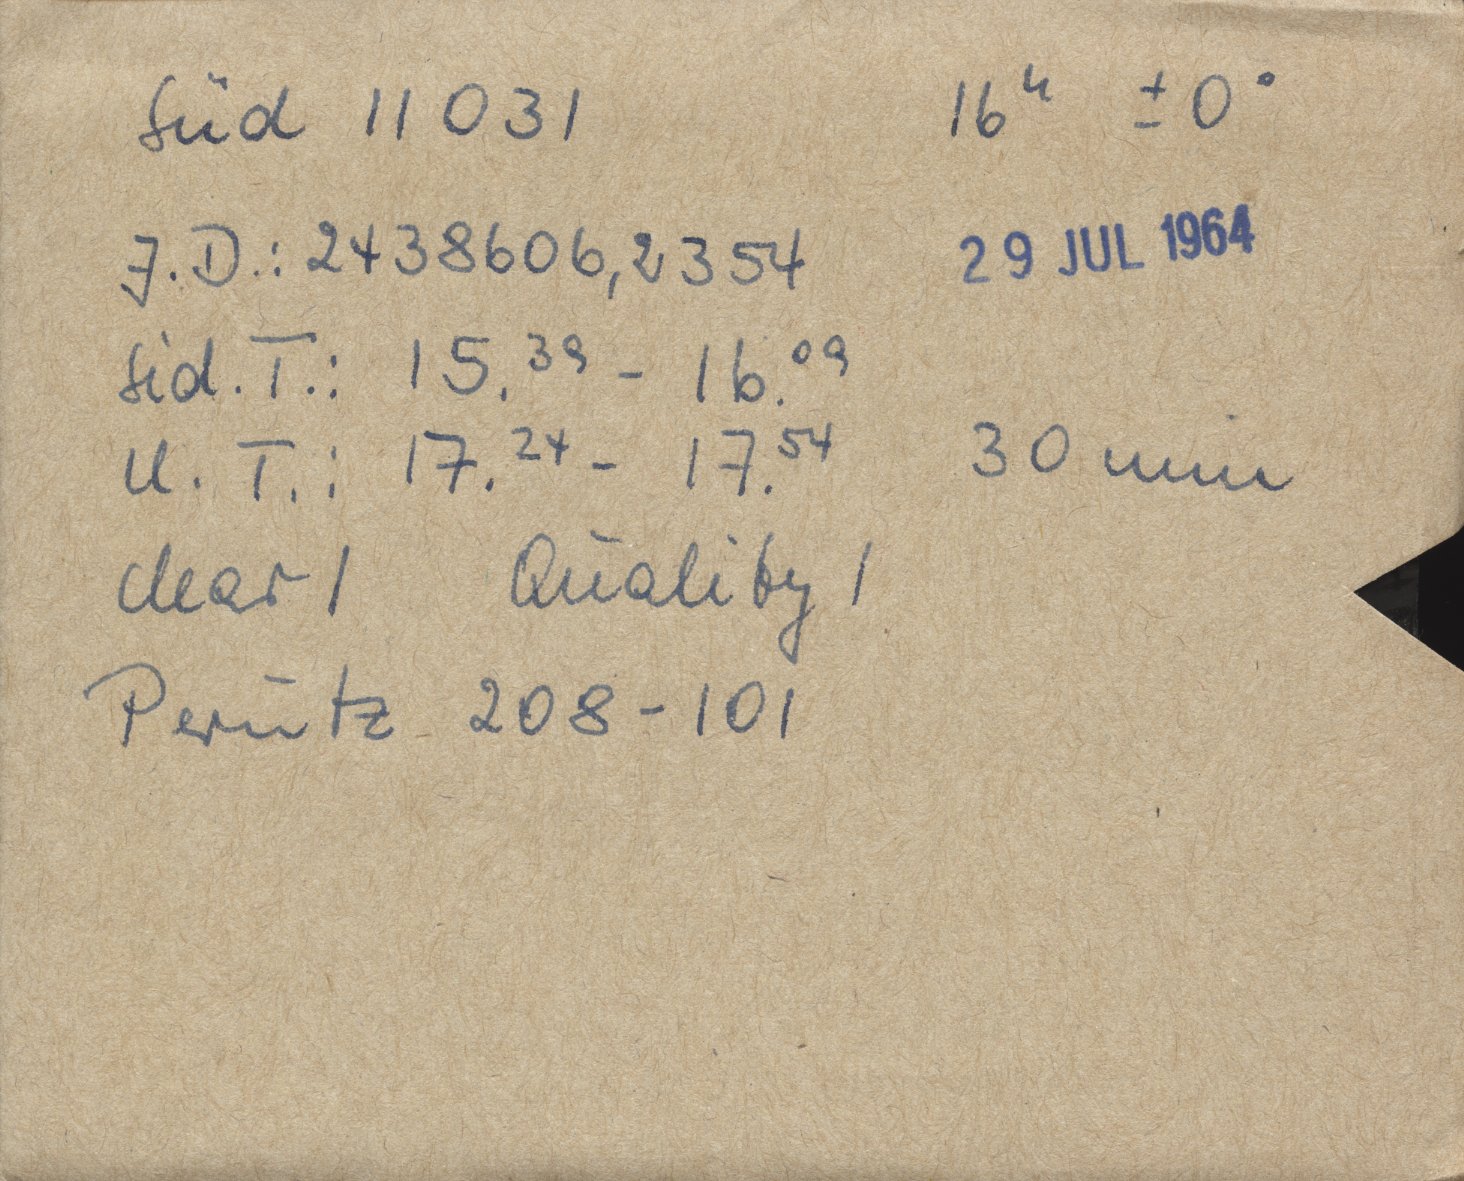 Süd 11031 16ʰ ±0°
J.D.: 2438606,2354 29 JUL 1964
Sid. T.: 15.³⁹ - 16.⁰⁹
U. T.: 17.²⁴ - 17.⁵⁴ 30 min
clear 1 Quality 1
Perutz 208-101